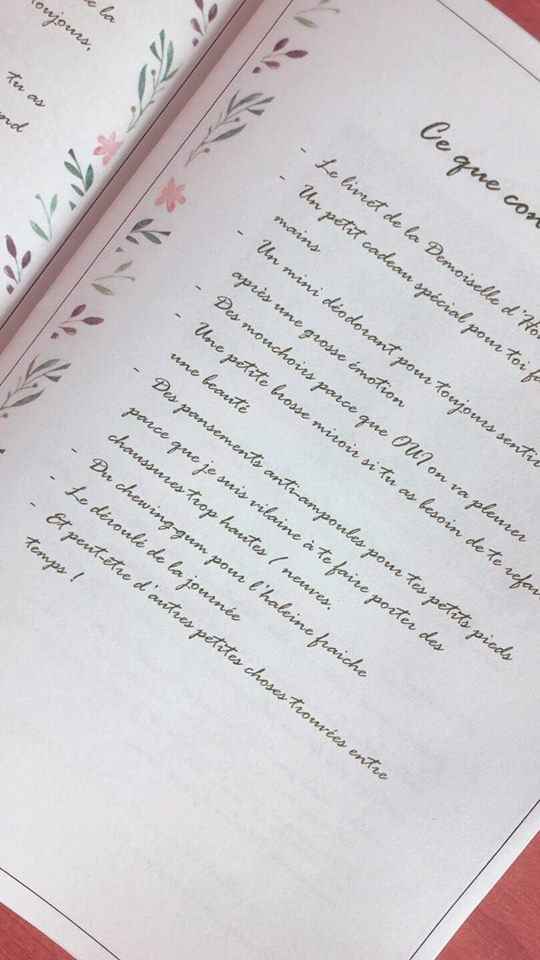 de la
toujours,
tu as
Ce que con
- Le livret de la Demoiselle d'Hon
- Un petit cadeau spécial pour toi fa
mains
- Un mini déodorant pour toujours sentir
après une grosse émotion
- Des mouchoirs parce que OUI on va pleurer
- Une petite brosse miroir si tu as besoin de te refai
une beauté
- Des pansements anti-ampoules pour tes petits pieds
parce que je suis vilaine à te faire porter des
chaussures trop hautes / neuves.
- Du chewing-gum pour l'haleine fraiche
- Le déroulé de la journée
- Et peut-être d'autres petites choses trouvées entre
temps !